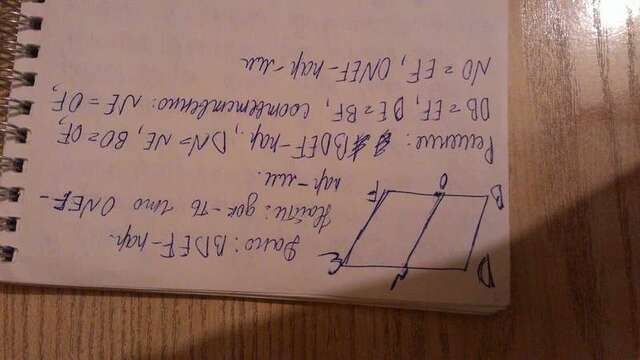 D
N
E
B
O
F
Дано: BDEF-пар.
Найти: док-ть что ONEF-
пар-мм.
Решение: BDEF-пар., DN=NE, BO=OF,
DB=EF, DE=BF, соответственно: NE=OF,
NO=EF, ONEF-пар-мм.